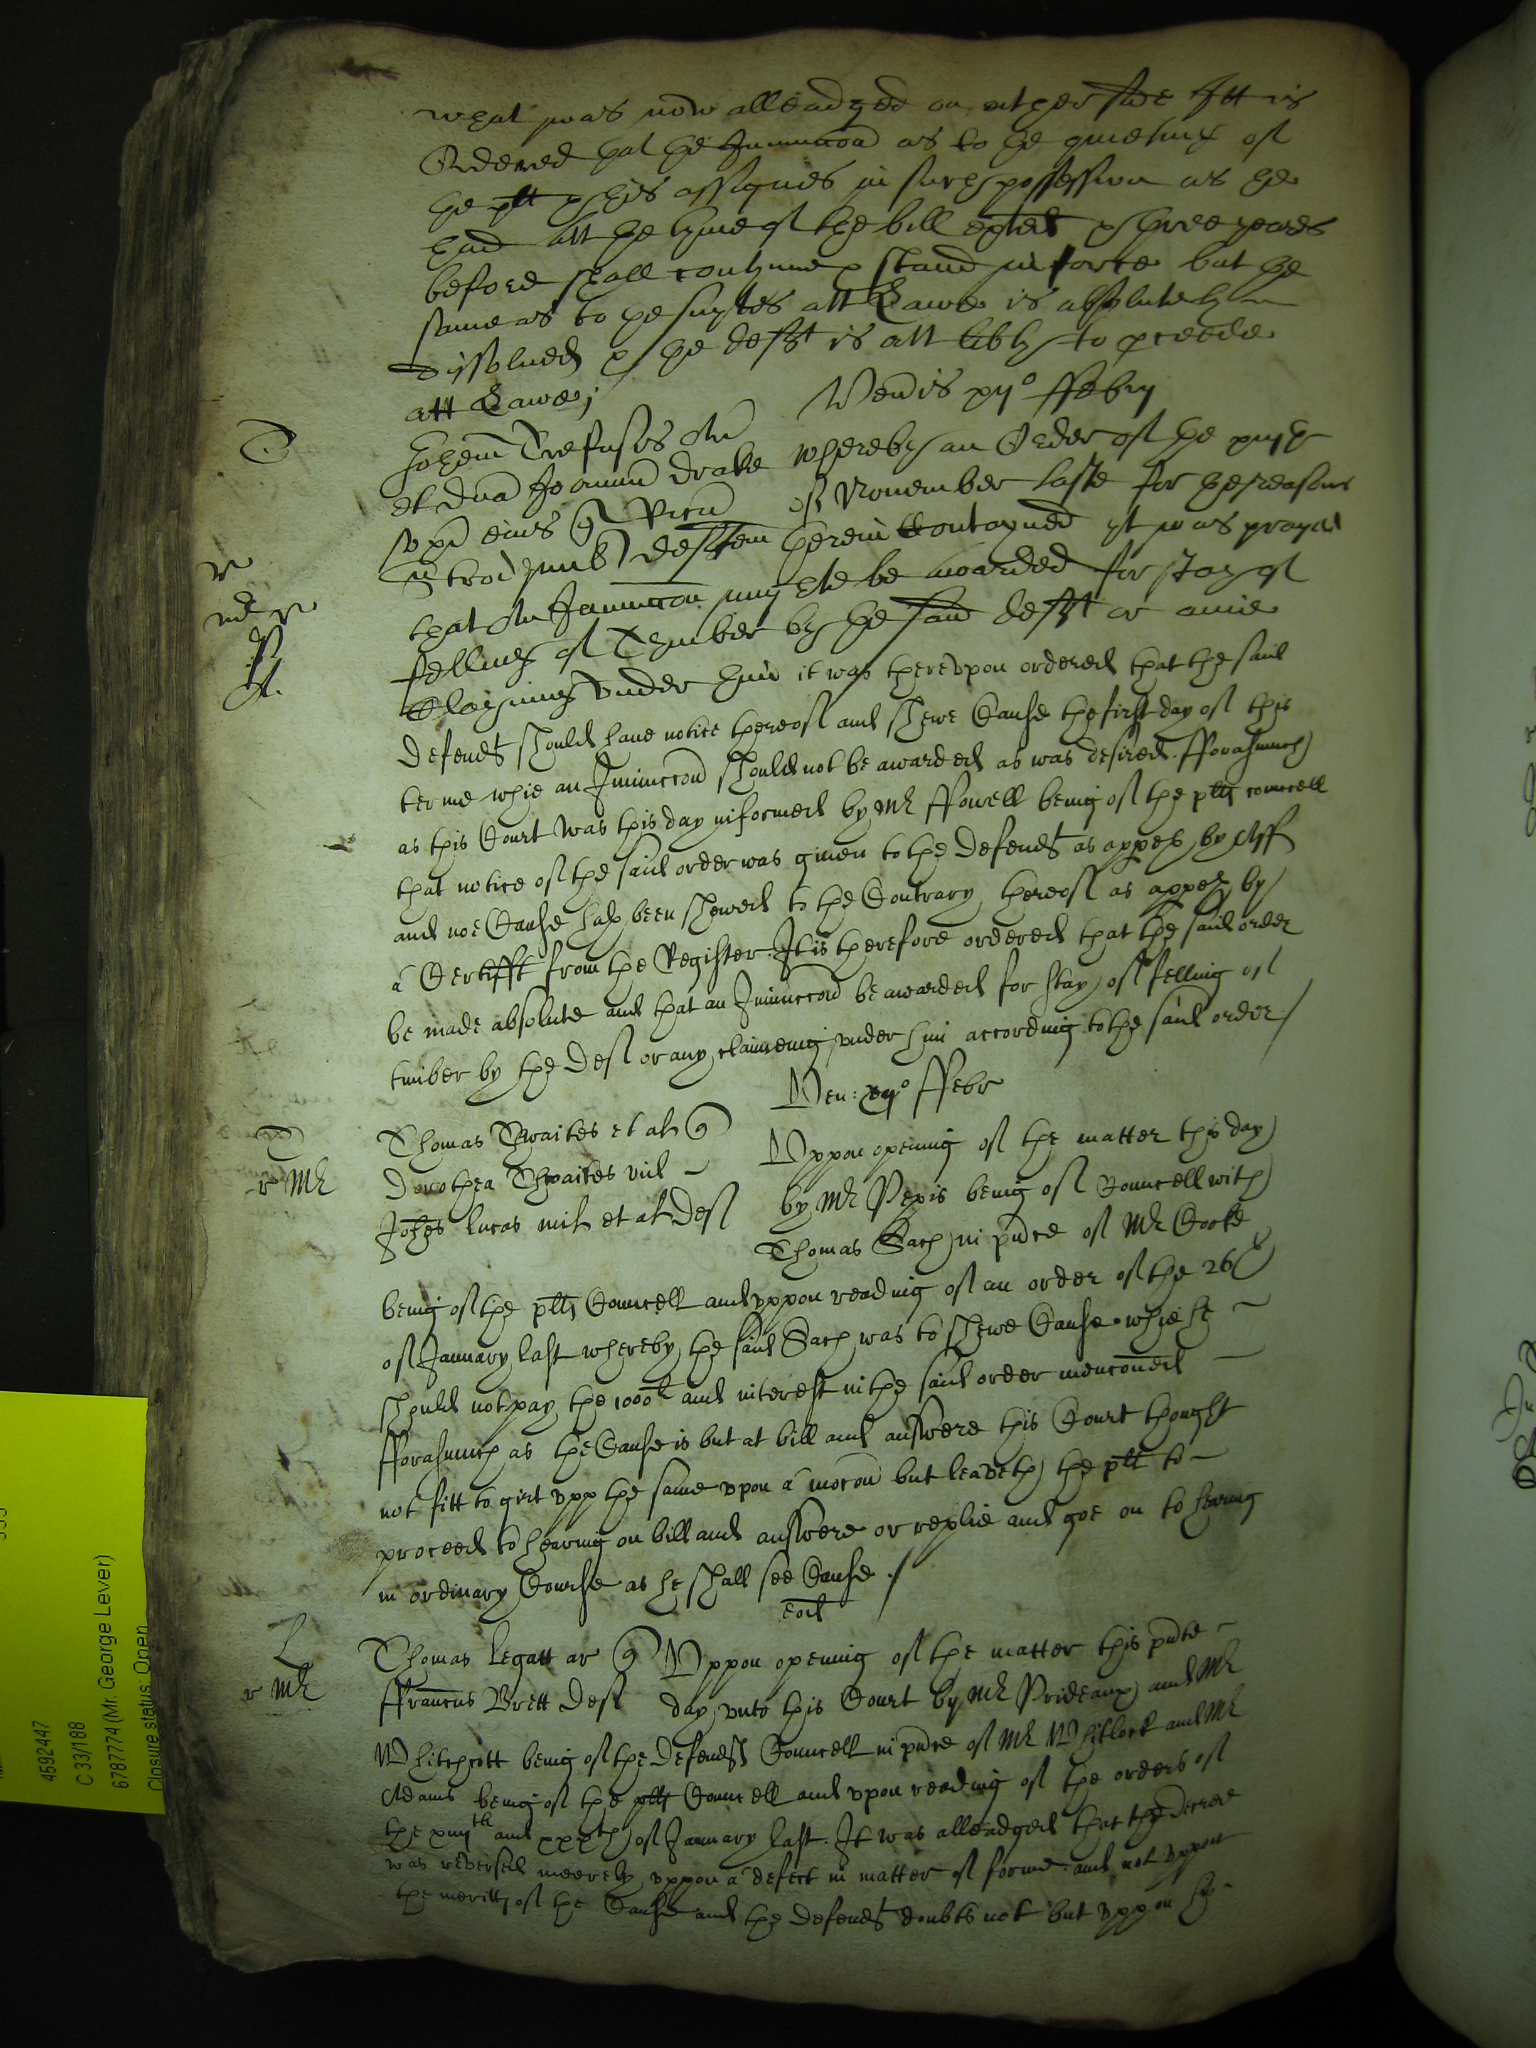 what was now alleadged on either side Itt is
Ordered that the Iniunccon as to the quieting of
the plt & his assignes in such possession as he
had att the tyme of the bill exhited & three yeares
before shall contynue & stand in force but the
same as to the suytes att Lawe is absolutely
dissolued & the deft is att libty to pceede
att Lawe
Veneris xijo ffebrij
T
Johem Trefusis Ar
et dnā Joannā Drake whereby an Order of the
vx eius of Nouember laste for the reasons
deften therein Contayned yt was prayed
that An Iniunccon might be awarded for stay of
felling of Tymber by the said deft or anie
Clayming vnder him it was therevpon ordered that the said
Defendt should haue notice thereof and shewe Cause the first day of this
terme whie an Iniunccon should not be awarded as was desired. fforasmuch
as this Court was this day informed by Mr ffowell being of the plts councell
that notice of the said order was giuen to the Defendt as appeth by Aff
and noe Cause hath been shewed to the Contrary thereof as appeth by
a Certifft from the Register. It is therefore ordered that the said order
be made absolute and that an Iniunccon be awarded for stay of felling of
timber by the Def or any claimeing vnder him according to the said order
Ven: xijo ffebr
T
r Mr
Thomas Thwaites et al Q
Dorothea Thwaites vid
Johes Lucas mil et al Def
Vppon opening of the matter this day
by Mr Pepis being of Councell with
Thomas Bach in pnce of Mr Cooke
being of the plts Councell and vppon reading of an order of the 26th
of January last whereby the said Bach was to shewe Cause whie he
should not pay the 1000l and interest in the said order menconed
fforasmuch as the Cause is but at bill and answere this Court thought
not fitt to giet vpp the same vpon a mocon but leaveth the plt to
proceed to hearing on bill and answere or replie and goe on to hearing
in ordinary Course as he shall see Cause
eod
L
r Mr
Thomas Legatt ar Q Vppon opening of the matter this pnte
ffranncus Brett Def day vnto this Court by Mr Prideaux and Mr
Whitchcott being of the Defendts Councell in pnce of Mr Whitlock and Mr
Adams being of the plts Councell and vpon reading of the orders of
the xiiijth and xxxth of January last. It was alleadged that the decree
was reversed meerely vppon a defect in matter of forme and not vppon
the meritts of the Cause and the Defendt doubts not but vppon hy
4592447
C 33/188
6787774 (Mr. George Lever)
Closure status: Open